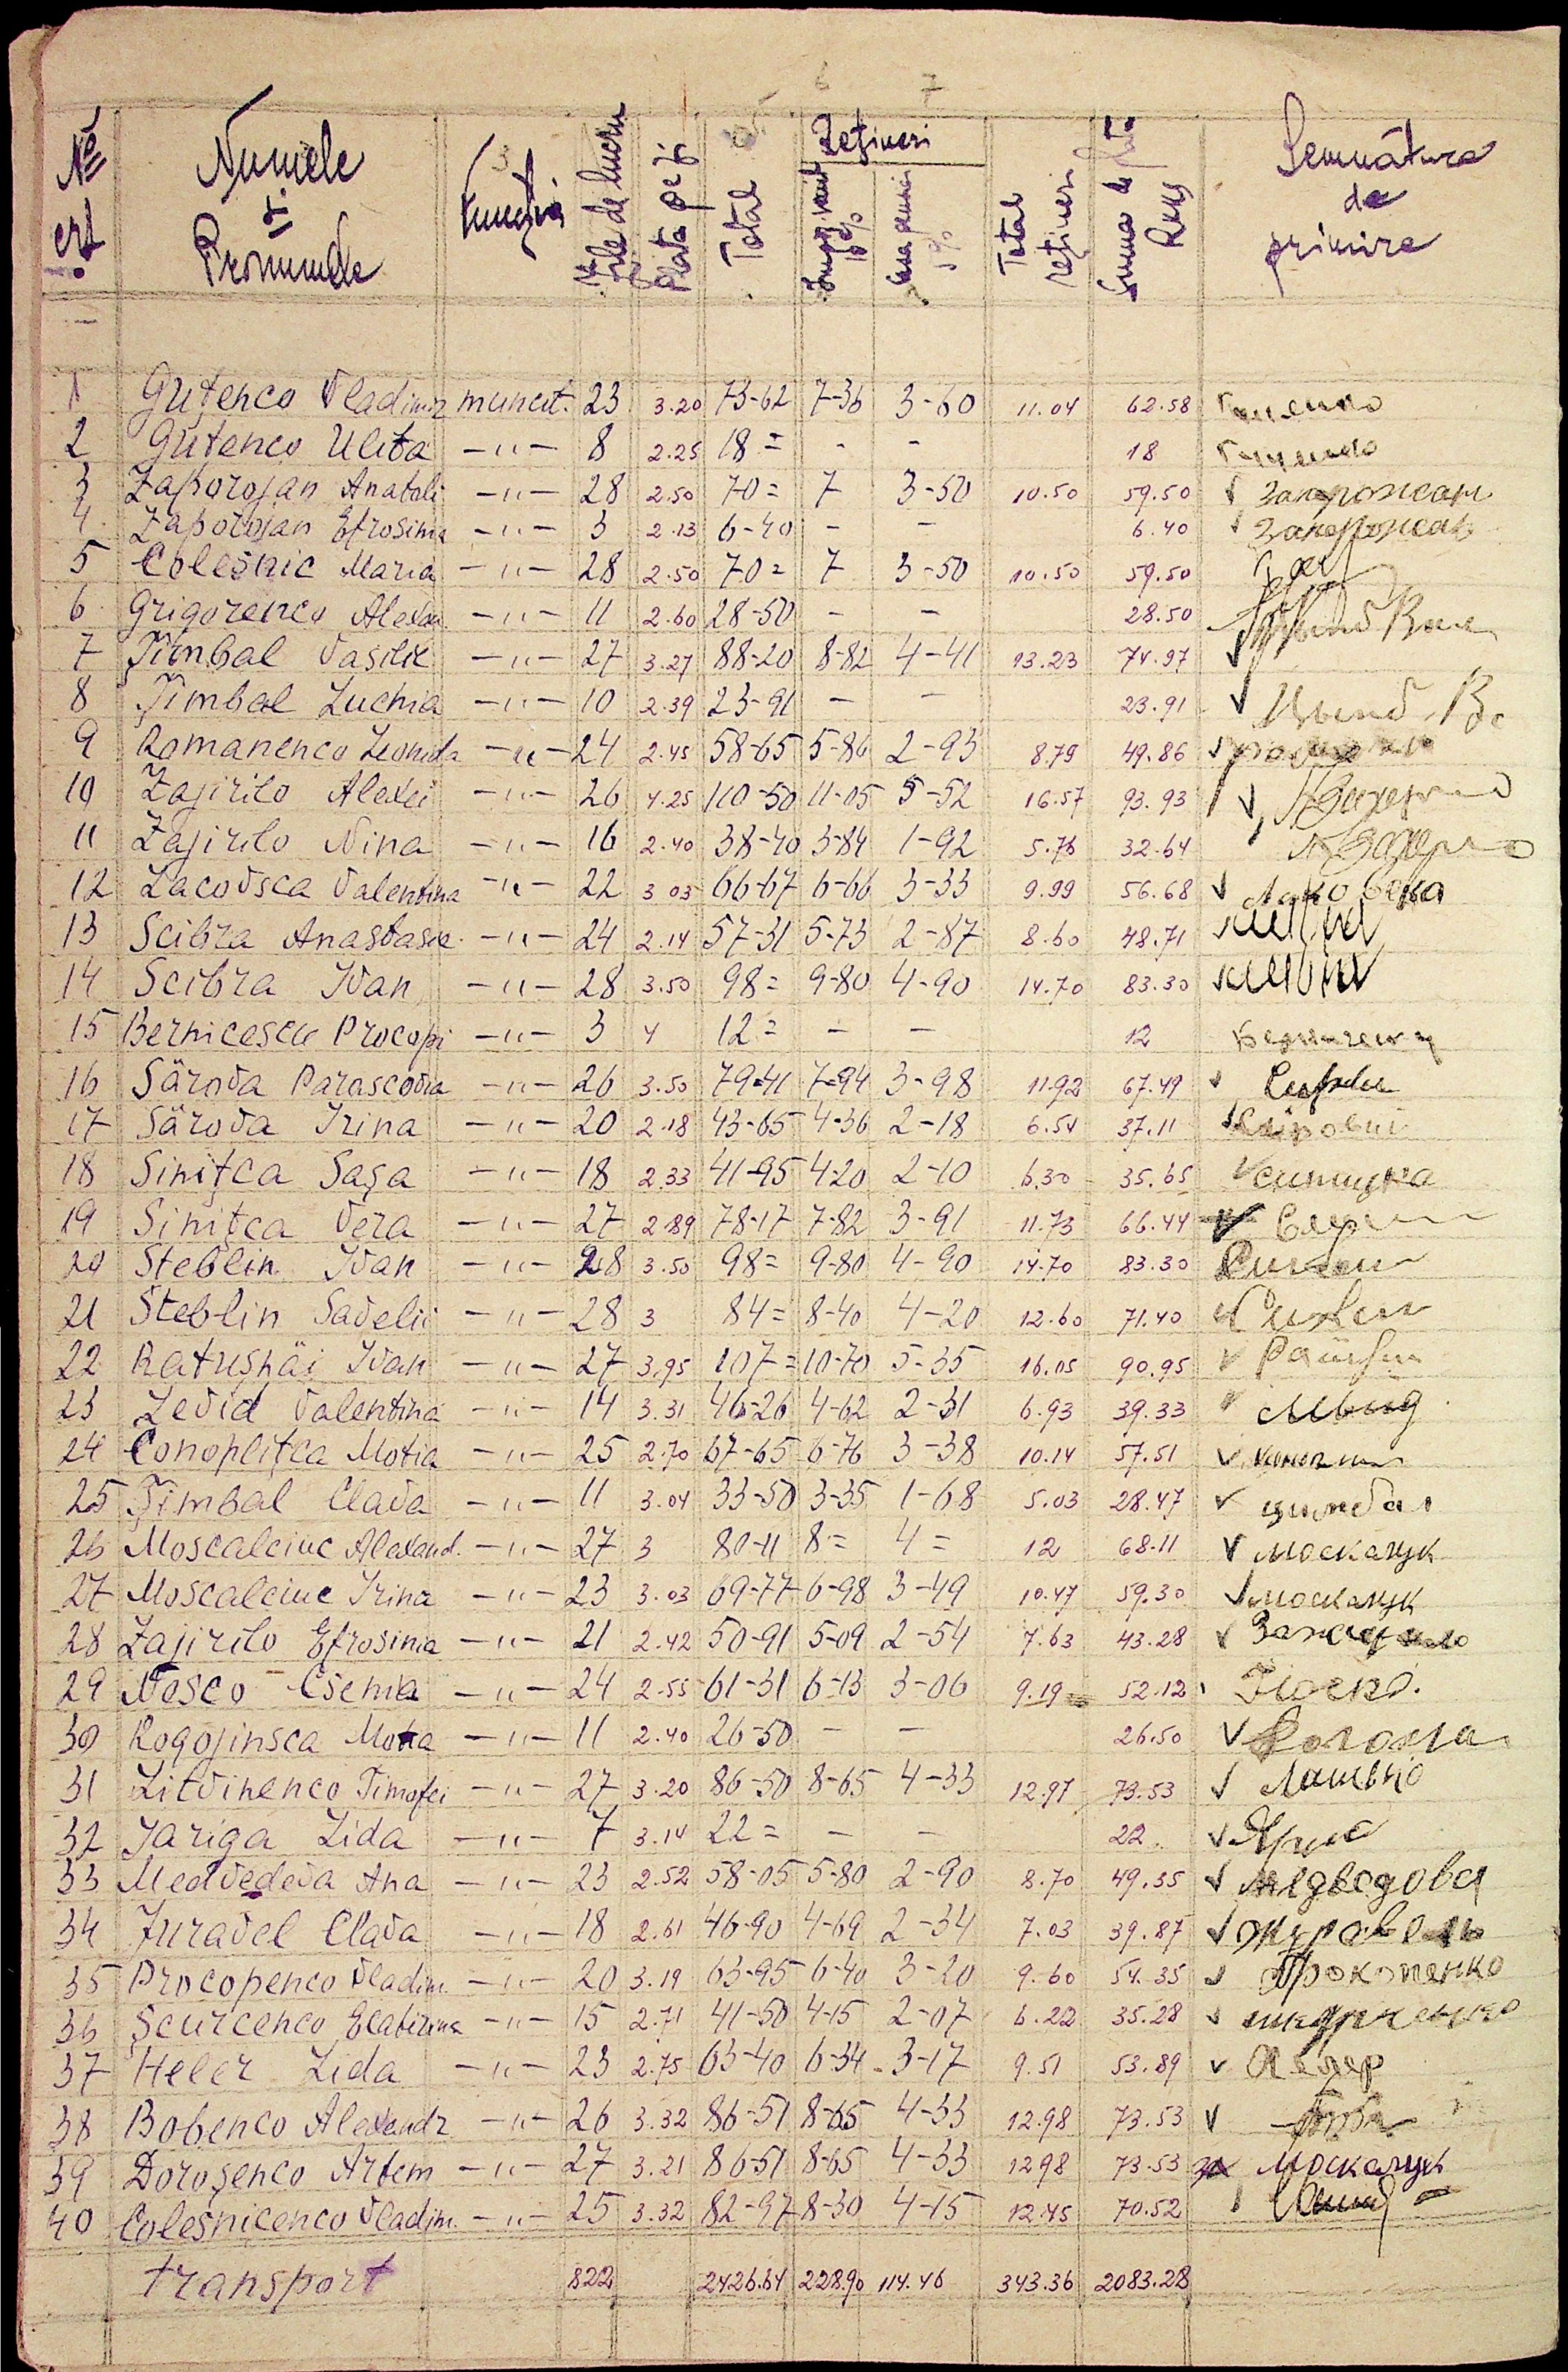 6 7
№ crt. Numele și Pronumele Funcția № zile de lucru Plata pe zi Total Rețineri Total rețineri Suma de Semnătura de primire
10% 5%
1 Guțenco Vladimir muncit. 23 3.20 73-62 7-36 3-60 11.04 62.58
2 Guțenco Ulita -"- 8 2.25 18= - - 18
3 Zaporojan Anatoli -"- 28 2.50 70= 7 3-50 10.50 59.50 Запорожан
4 Zaporojan Efrosinia -"- 3 2.13 6-40 - - 6.40 Запорожан
5 Colesnic Maria -"- 28 2.50 70= 7 3-50 10.50 59.50
6 Grigorenco Alexan -"- 11 2.60 28-50 - - 28.50
7 Țimbal Vasilie -"- 27 3.27 88-20 8-82 4-41 13.23 74.97
8 Țimbal Luchia -"- 10 2.39 23-91 - - 23.91
9 Romanenco Leonida -"- 24 2.45 58-65 5-86 2-93 8.79 49.86
10 Zajirilo Alexei -"- 26 4.25 110-50 11-05 5-52 16.57 93.93
11 Zajirilo Nina -"- 16 2.40 38-40 3-84 1-92 5.76 32.64
12 Lacovsca Valentina -"- 22 3 03 66-67 6-66 3-33 9.99 56.68
13 Scibra Anastasie -"- 24 2.14 57-31 5-73 2-87 8.60 48.71
14 Scibra Ivan -"- 28 3.50 98= 9-80 4-90 14.70 83.30
15 Bernicescu Procopi -"- 3 4 12= - - 12
16 Särova Parascovia -"- 26 3.50 79-41 7-94 3-98 11.92 67.49
17 Särova Irina -"- 20 2.18 43-65 4-36 2-18 6.54 37.11
18 Sinițca Sașa -"- 18 2.33 41-95 4-20 2-10 6.30 35.65 синицка
19 Sinițca Vera -"- 27 2.89 78-17 7-82 3-91 11.73 66.44
20 Steblin Ivan -"- 28 3.50 98= 9-80 4-90 14.70 83.30
21 Steblin Savelii -"- 28 3 84= 8-40 4-20 12.60 71.40
22 Ratușnäi Ivan -"- 27 3.95 107= 10-70 5-35 16.05 90.95
23 Levid Valentina -"- 14 3.31 46-26 4-62 2-31 6.93 39.33
24 Conoplițca Motia -"- 25 2.70 67-65 6-76 3-38 10.14 57.51
25 Țimbal Clava -"- 11 3.04 33-50 3-35 1-68 5.03 28.47 цимбал
26 Moscalciuc Alexand. -"- 27 3 80-11 8= 4= 12 68.11 москалчук
27 Moscalciuc Irina -"- 23 3.03 69-77 6-98 3-49 10.47 59.30 москалчук
28 Zajirilo Efrosinia -"- 21 2.42 50-91 5-09 2-54 7.63 43.28
29 Nosco Csenia -"- 24 2.55 61-31 6-13 3-06 9.19 52.12
30 Rogojinsca Motia -"- 11 2.40 26-50 - - 26.50
31 Litvinenco Timofei -"- 27 3.20 86-50 8-65 4-33 12.97 73.53
32 Jariga Lida -"- 7 3.14 22= - - 22.
33 Medvedeva Ana -"- 23 2.52 58-05 5-80 2-90 8.70 49.35 медведова
34 Juravel Clava -"- 18 2.61 46-90 4-69 2-34 7.03 39.87 журавель
35 Procopenco Vladim. -"- 20 3.19 63-95 6-40 3-20 9.60 54.35 Прокопенко
36 Șcurcenco Ecatirina -"- 15 2.71 41-50 4-15 2-07 6.22 35.28
37 Heler Lida -"- 23 2.75 63-40 6-34 3-17 9.51 53.89 Хелер
38 Bobenco Alexandr -"- 26 3.32 86-51 8-65 4-33 12.98 73.53
39 Doroșenco Artem -"- 27 3.21 86-51 8-65 4-33 12.98 73.53 за Москалчук
40 Colesnicenco Vladim. -"- 25 3.32 82-97 8-30 4-15 12.45 70.52
transport 822 2426.64 228.90 114.46 343.36 2083.28